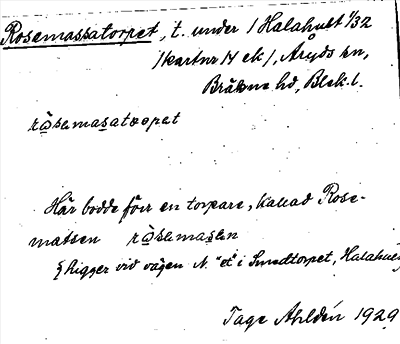 Rosemassatorpet, t. under / Halahult 1/32
/kartnr 14 ek/, Aryds sn,
Bräkne hd, Blek. l.
råsemasatorpet
Här bodde förr en torpare, kallad Rose-
matsen råsemasen
ligger vid vägen N. "et" i Smedtorpet, Halahult
Tage Ahldén 1929